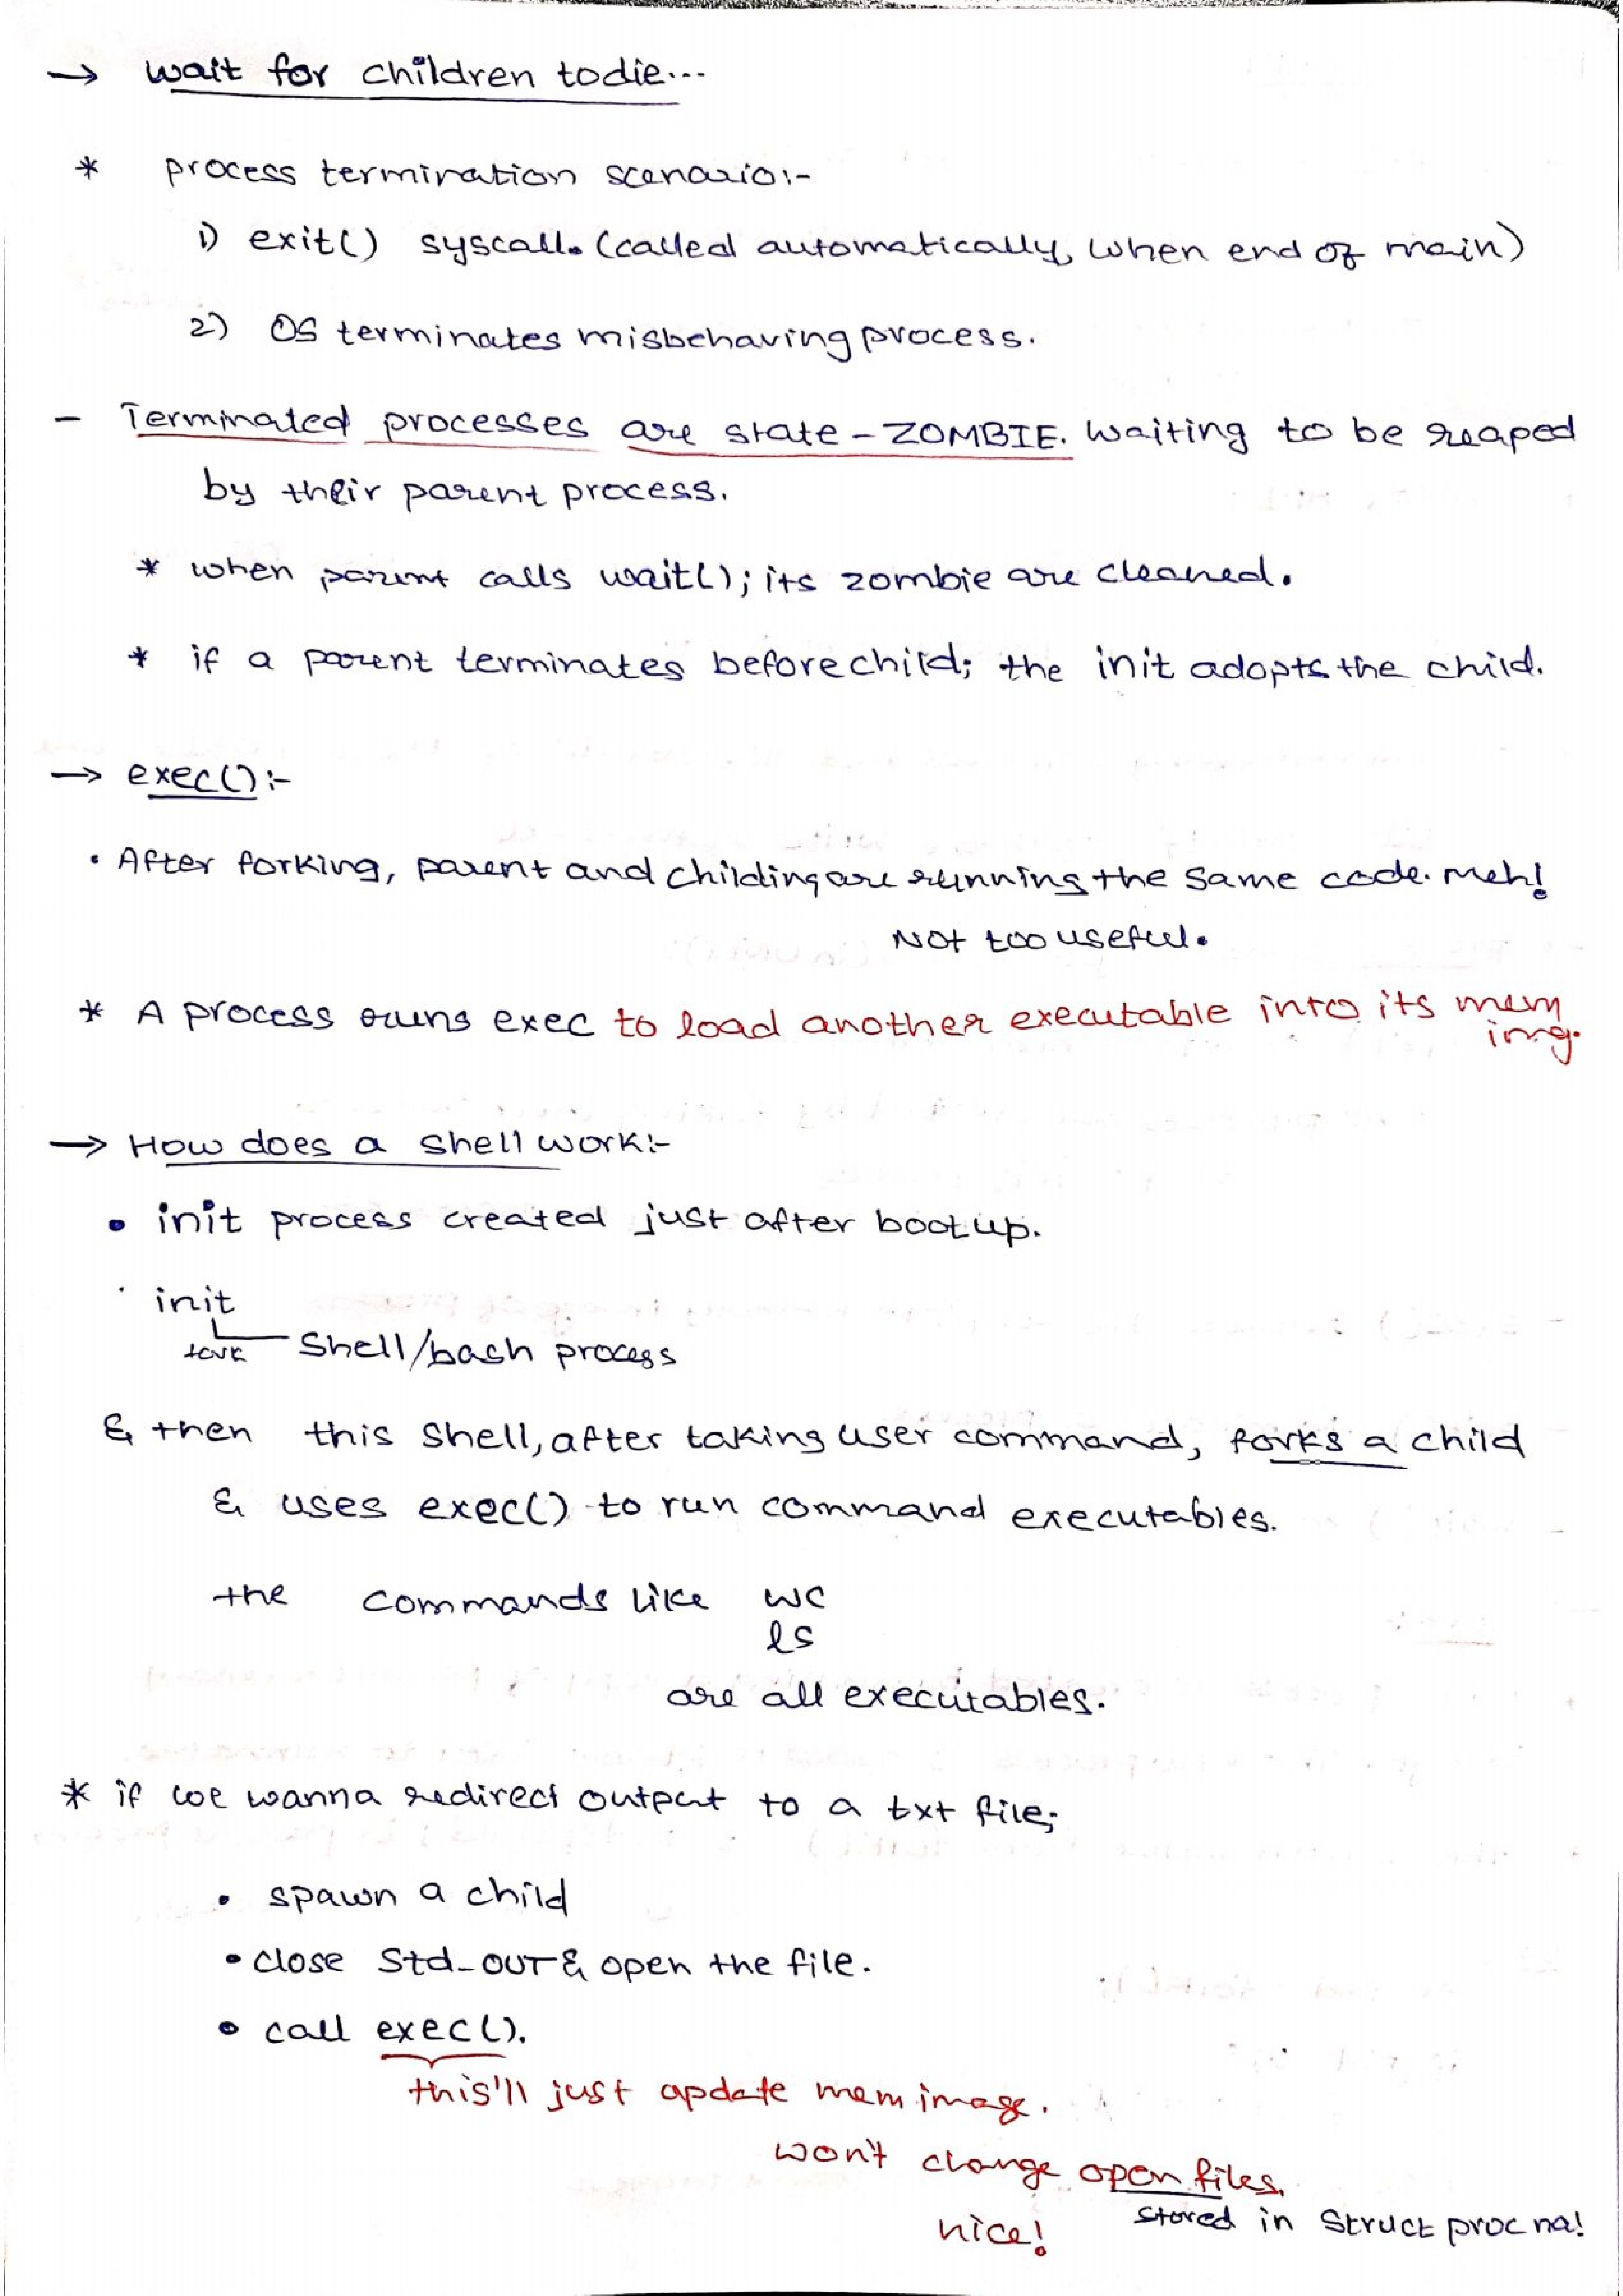 → wait for children to die...
* process termination scenario:-
1) exit() syscall. (called automatically, when end of main)
2) OS terminates misbehaving process.
- Terminated processes are state - ZOMBIE. Waiting to be reaped
by their parent process.
* when parent calls wait(); its zombie are cleaned.
* if a parent terminates before child; the init adopts the child.
→ exec():-
• After forking, parent and childing are running the same code. meh!
Not too useful.
* A process runs exec to load another executable into its mem
img.
→ How does a shell work:-
• init process created just after bootup.
• init
fork Shell/bash process
& then this shell, after taking user command, forks a child
& uses exec() to run command executables.
the commands like wc
ls
are all executables.
* if we wanna redirect output to a txt file;
• spawn a child
• close Std-OUT & open the file.
• call exec().
this'll just update mem image.
won't change open files,
stored in struct proc na!
nice!